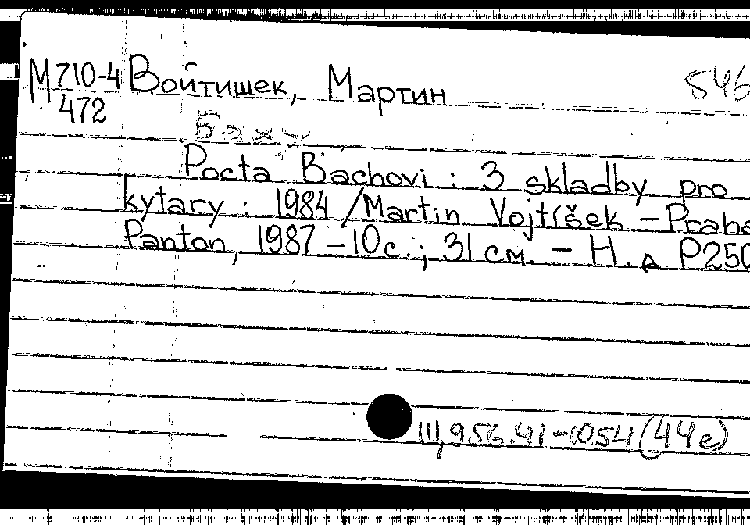 М710-4 Войтишек, Мартин 546
472
Баху
Pocta Bachovi : 3 skladby pro
kytary : 1984 / Martin Vojtíšek – Praha
Panton, 1987 – 10 с. ; 31 см. – Н. д P250
III, 9.56.41-1054 (44е)